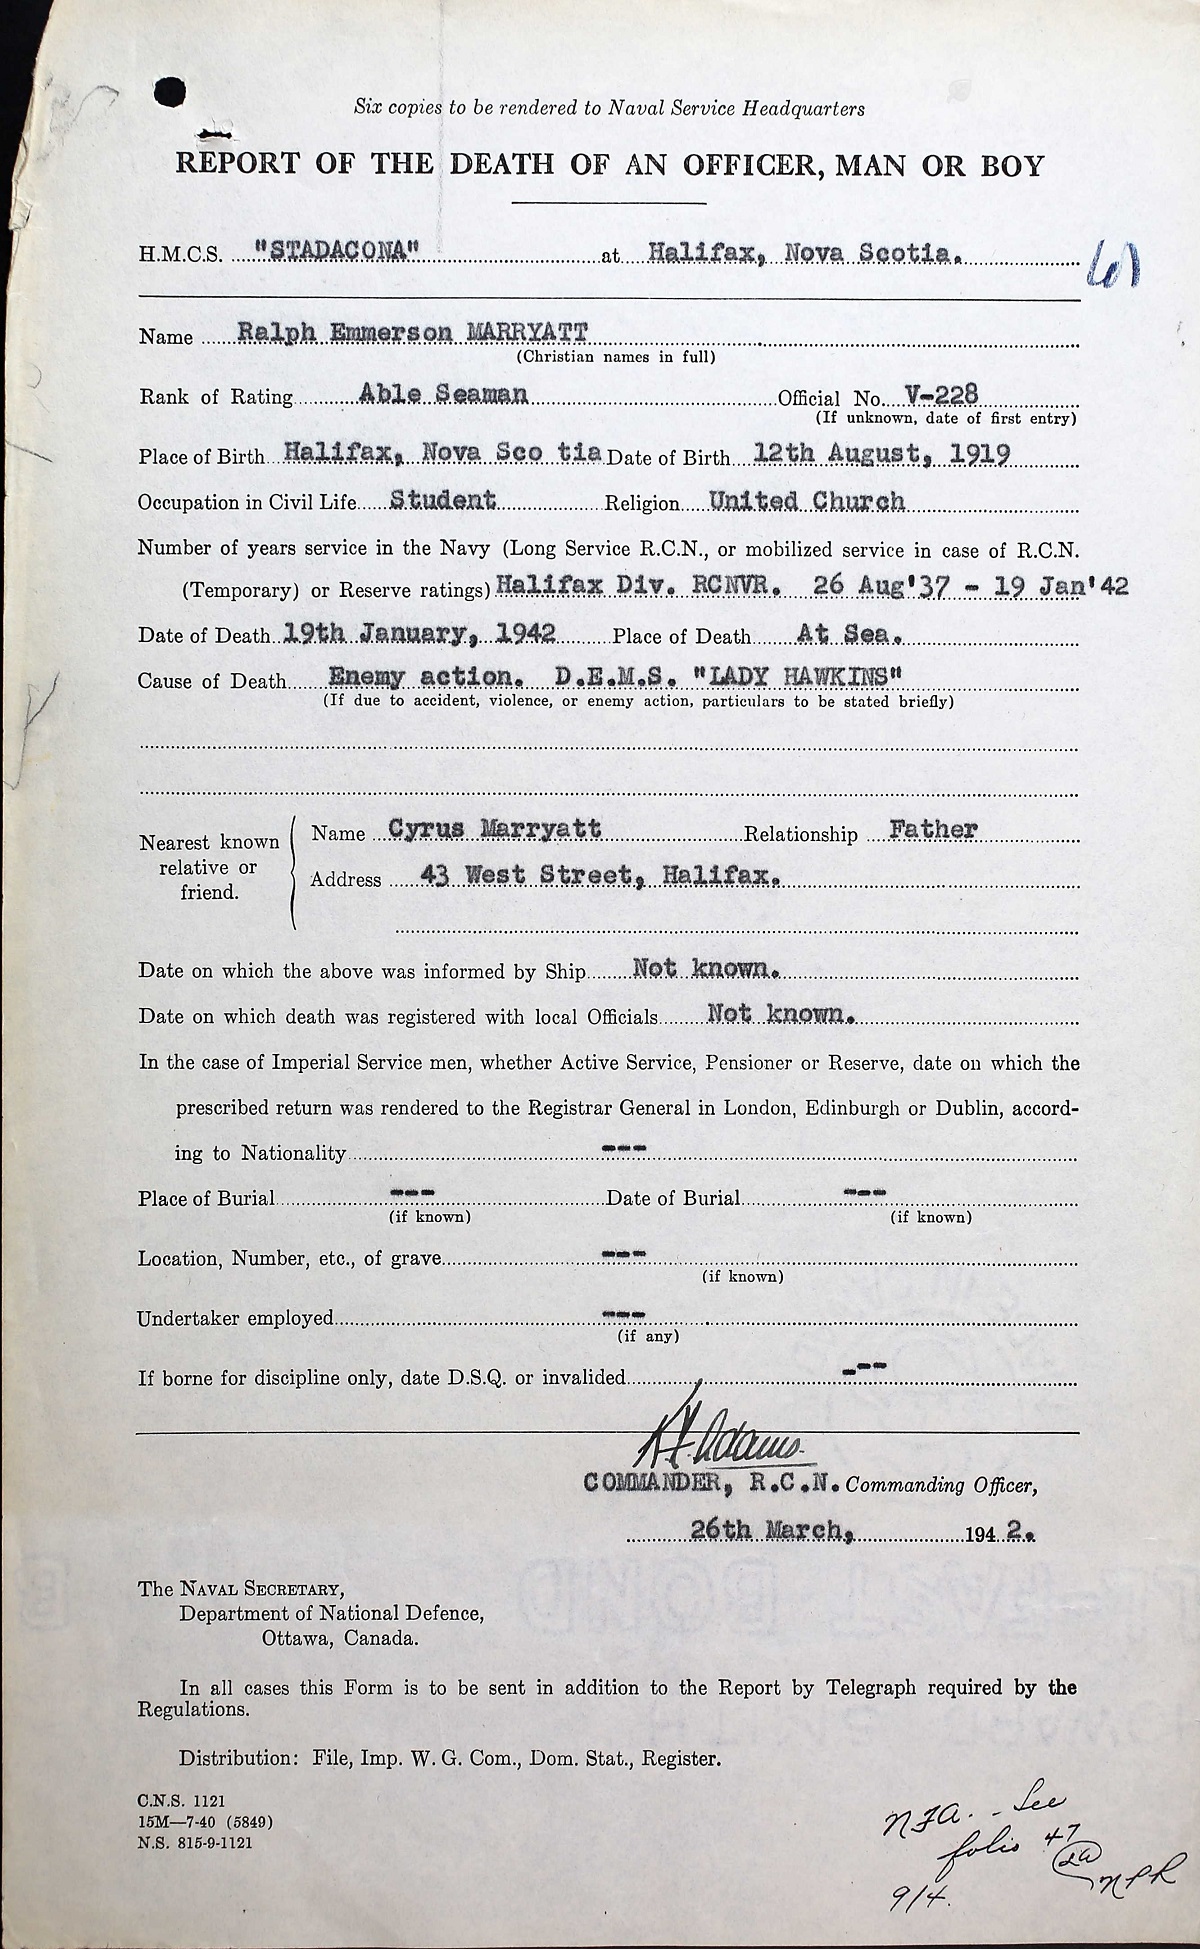 Six copies to be rendered to Naval Service Headquarters
REPORT OF THE DEATH OF AN OFFICER, MAN OR BOY
H.M.C.S. "STADACONA" at Halifax, Nova Scotia.
61
Name Ralph Emmerson MARRYATT
(Christian names in full)
Rank of Rating Able Seaman Official No. V-228
(If unknown, date of first entry)
Place of Birth Halifax, Nova Sco tia Date of Birth 12th August, 1919
Occupation in Civil Life Student Religion United Church
Number of years service in the Navy (Long Service R.C.N., or mobilized service in case of R.C.N.
(Temporary) or Reserve ratings) Halifax Div. RCNVR. 26 Aug'37 - 19 Jan'42
Date of Death 19th January, 1942 Place of Death At Sea.
Cause of Death Enemy action. D.E.M.S. "LADY HAWKINS"
(If due to accident, violence, or enemy action, particulars to be stated briefly)
Nearest known relative or friend.
Name Cyrus Marryatt Relationship Father
Address 43 West Street, Halifax.
Date on which the above was informed by Ship Not known.
Date on which death was registered with local Officials Not known.
In the case of Imperial Service men, whether Active Service, Pensioner or Reserve, date on which the
prescribed return was rendered to the Registrar General in London, Edinburgh or Dublin, accord-
ing to Nationality ---
Place of Burial --- Date of Burial ---
(if known) (if known)
Location, Number, etc., of grave ---
(if known)
Undertaker employed ---
(if any)
If borne for discipline only, date D.S.Q. or invalided ---
K F Adams
COMMANDER, R.C.N. Commanding Officer,
26th March, 1942.
The NAVAL SECRETARY,
Department of National Defence,
Ottawa, Canada.
In all cases this Form is to be sent in addition to the Report by Telegraph required by the
Regulations.
Distribution: File, Imp. W. G. Com., Dom. Stat., Register.
C.N.S. 1121
15M—7-40 (5849)
N.S. 815-9-1121
NFA. - See
folio 47
NPR
9/4.